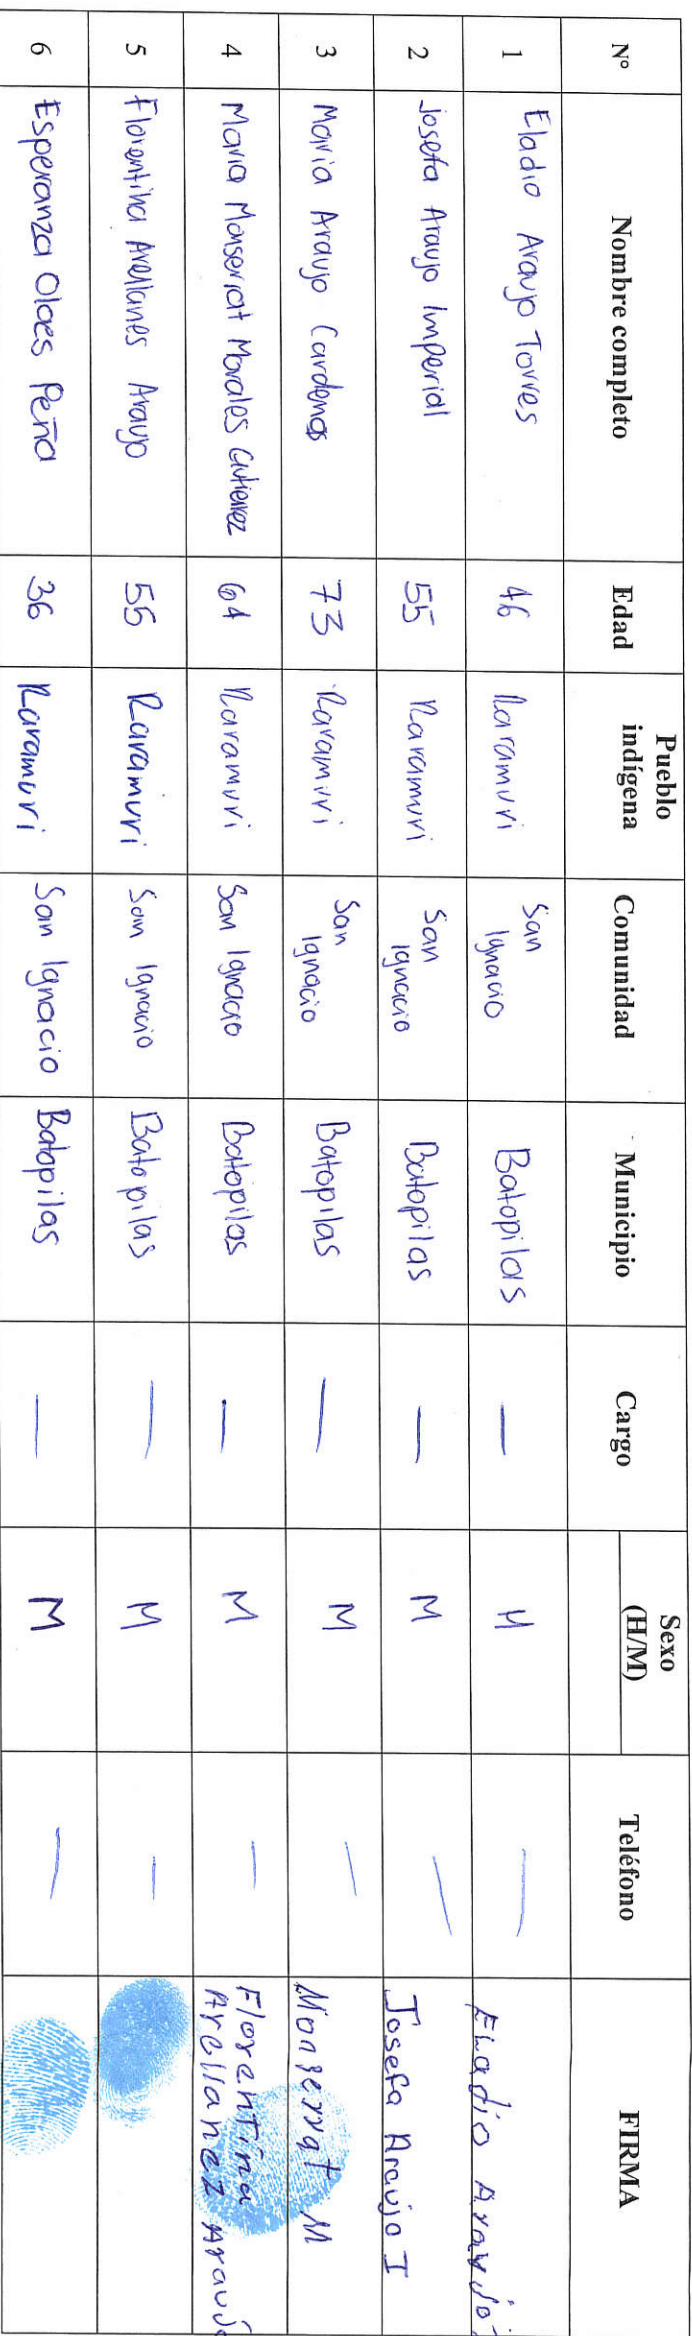 N° Nombre completo Edad Pueblo indígena Comunidad Municipio Cargo Sexo (H/M) Teléfono FIRMA
1 Eladio Araujo Torres 46 Raramuri San Ignacio Batopilas — H — Eladio Araujo
2 Josefa Araujo Imperial 55 Raramuri San Ignacio Batopilas — M — Josefa Araujo I
3 Maria Araujo Cardenas 73 Raramuri San Ignacio Batopilas — M — Monserrat M
4 Maria Monserrat Morales Gutierrez 64 Raramuri San Ignacio Batopilas — M — Florentina Arellanez Arauj
5 Florentina Arellanes Araujo 55 Raramuri San Ignacio Batopilas — M —
6 Esperanza Olaes Peña 36 Raramuri San Ignacio Batopilas — M —